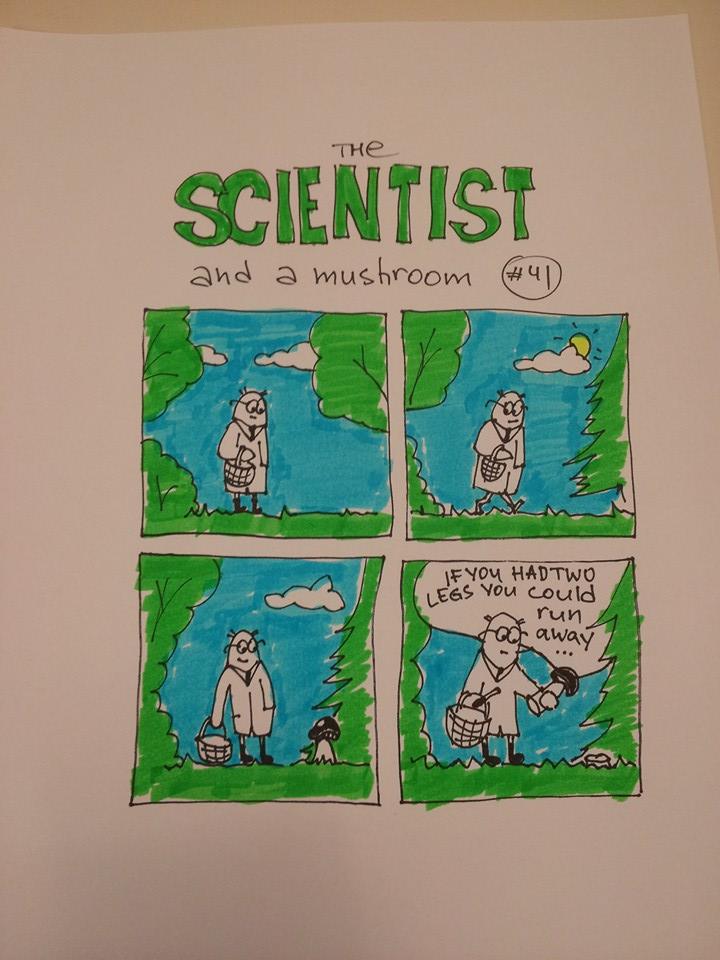 THE
SCIENTIST
and a mushroom #41
IF YOU HAD TWO
LEGS YOU could
run
away
...